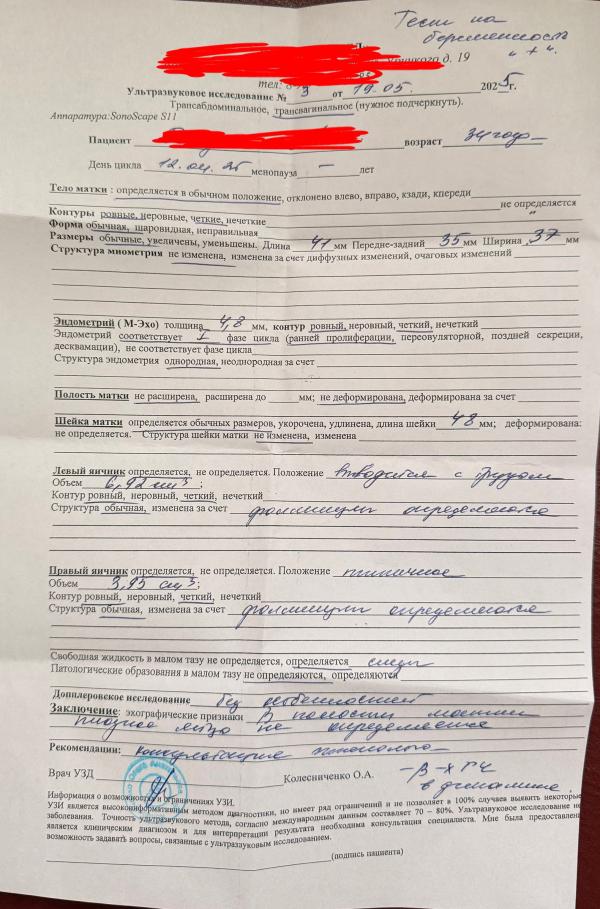 Тест на
беременность
"+".
д. 19
тел:
Ультразвуковое исследование № 3 от 19.05. 2025г.
Трансабдоминальное, трансвагинальное (нужное подчеркнуть).
Аппаратура:SonoScape S11
Пациент возраст 34 года
День цикла 12.04.25 менопауза — лет
Тело матки : определяется в обычном положение, отклонено влево, вправо, кзади, кпереди
не определяется
Контуры ровные, неровные, четкие, нечеткие
Форма обычная, шаровидная, неправильная
Размеры обычные, увеличены, уменьшены. Длина 41 мм Передне-задний 35 мм Ширина 37 мм
Структура миометрия не изменена, изменена за счет диффузных изменений, очаговых изменений
Эндометрий ( М-Эхо) толщина 4,8 мм, контур ровный, неровный, четкий, нечеткий
Эндометрий соответствует I фазе цикла (ранней пролиферации, переовуляторной, поздней секреции,
десквамации), не соответствует фазе цикла
Структура эндометрия однородная, неоднородная за счет
Полость матки не расширена, расширена до мм; не деформирована, деформирована за счет
Шейка матки определяется обычных размеров, укорочена, удлинена, длина шейки 48 мм; деформирована:
не определяется. Структура шейки матки не изменена, изменена
Левый яичник определяется, не определяется. Положение выводится с трудом
Объем 6,92 см³ ;
Контур ровный, неровный, четкий, нечеткий
Структура обычная, изменена за счет фолликулы определяются
Правый яичник определяется, не определяется. Положение типичное
Объем 3,95 см³;
Контур ровный, неровный, четкий, нечеткий
Структура обычная, изменена за счет фолликулы определяются
Свободная жидкость в малом тазу не определяется, определяется следы
Патологические образования в малом тазу не определяются, определяются
Допплеровское исследование без особенностей
Заключение: эхографические признаки В полости матки
плодное яйцо не определяется
Рекомендации: консультация гинеколога
Врач УЗД Колесниченко О.А. -β-ХГЧ
в динамике.
Информация о возможностях и ограничениях УЗИ.
УЗИ является высокоинформативным методом диагностики, но имеет ряд ограничений и не позволяет в 100% случаев выявить некоторые
заболевания. Точность ультразвукового метода, согласно международным данным составляет 70 – 80%. Ультразвуковое исследование не
является клиническим диагнозом и для интерпретации результата необходима консультация специалиста. Мне была предоставлена
возможность задавать вопросы, связанные с ультразвуковым исследованием.
(подпись пациента)